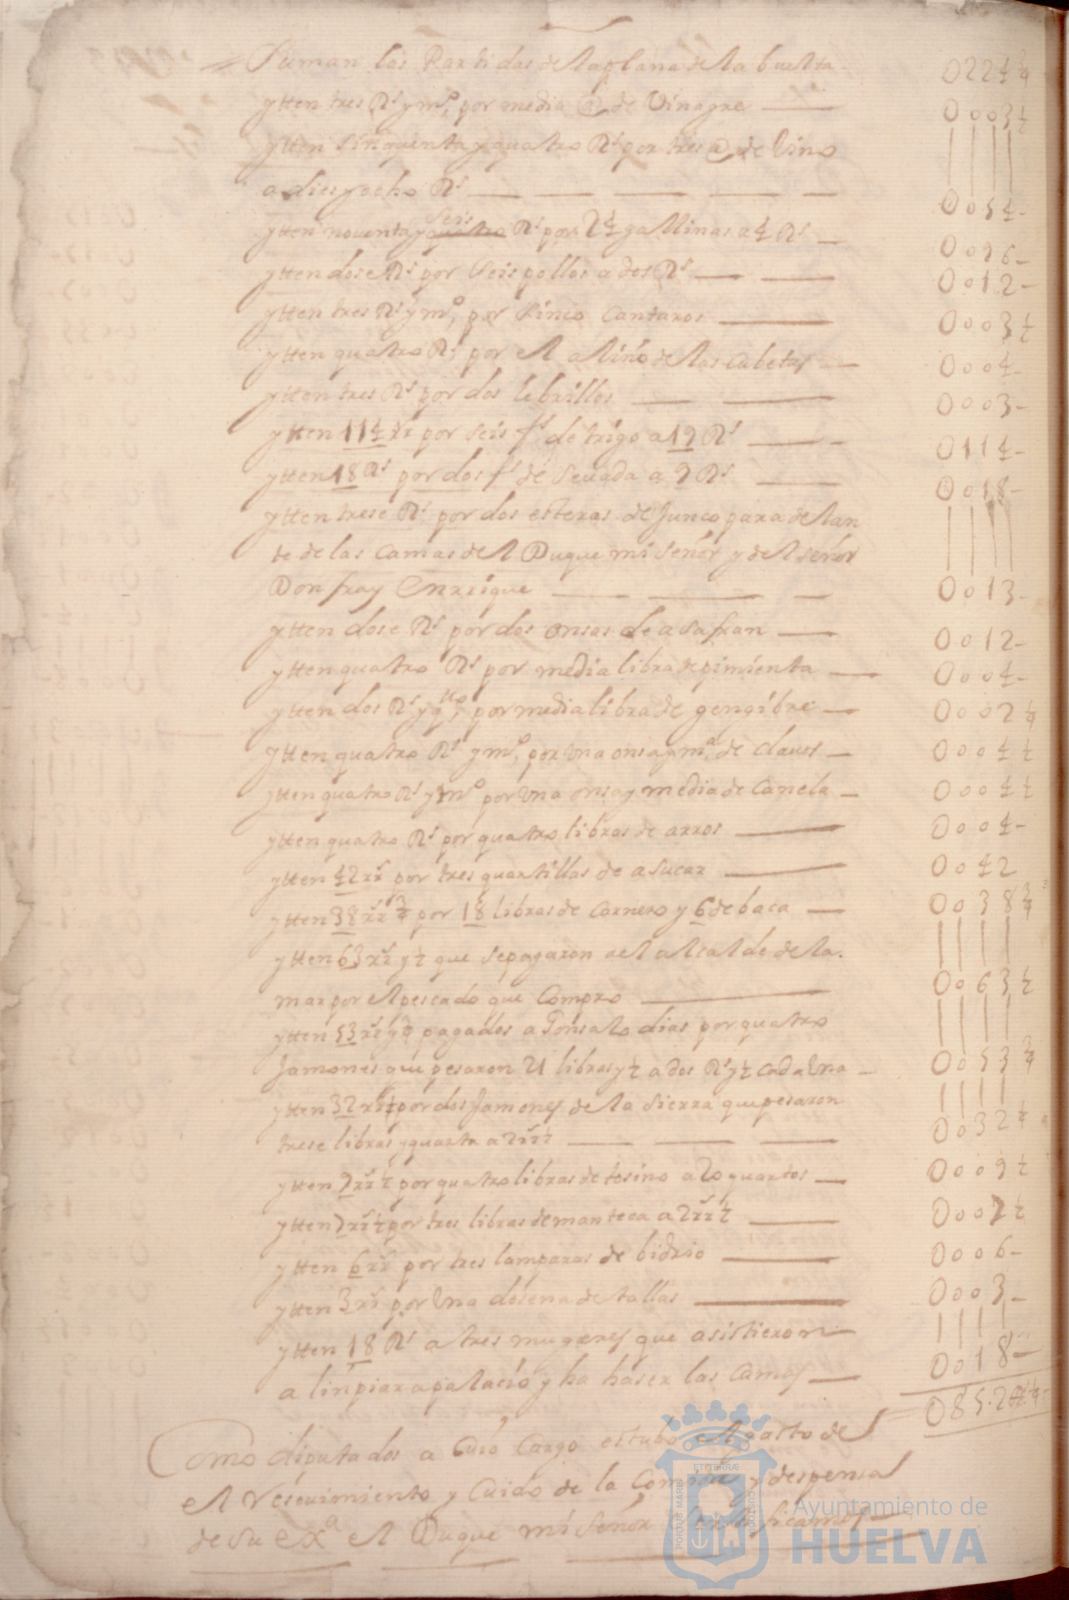 Suman las Partidas de la plana de la buelta 0224¼
ytten tres Rs y mo, por media @ de Vinagre 0003½
ytten sinquenta y quatro Rs por tres @ de Vino
a dies y ocho Rs 0054
ytten noventa y seis Rs por 24 gallinas a 4 Rs 0096
ytten dose Rs por seis pollos a dos Rs 0012
ytten tres Rs y mo, por sinco cantaros 0003½
ytten quatro Rs por el aliño de las cubetas 0004
ytten tres Rs por dos lebrillos 0003
ytten 114 rr por seis fs de trigo a 19 Rs 0114
ytten 18 Rs por dos fs de sevada a 9 Rs 0018
ytten trese Rs por dos esteras de Junco para delan
te de las camas de el Duque mi señor y de el señor
Don fray Enrrique 0013
ytten dose Rs por dos onsas de asafran 0012
ytten quatro Rs por media libra de pimienta 0004
ytten dos Rs y qto, por media libra de gengibre 0002¼
ytten quatro Rs y mo, por Una onsa y ma de clavos 0004½
ytten quatro Rs y mo por Una onsa y media de Canela 0004½
ytten quatro Rs por quatro libras de arros 0004
ytten 42 rr por tres quartillas de asucar 0042
ytten 38 rr ¾ por 18 libras de carnero y 6 de baca 0038¾
ytten 63 rr y ½ que se pagaron a el alcalde de la
mar por el pescado que compro 0063½
ytten 53 rr y ¾ pagados a Gonsalo dias por quatro
Jamones que pesaron 21 libras y ½ a dos Rs y ½ cada Una 0053¾
ytten 32 rr ½ por dos Jamones de la sierra que pesaron
trese libras y quarta a 2 rr ½ 0032½
ytten 9 rr ½ por quatro libras de tosino a 20 quartos 0009½
ytten 7 rr ½ por tres libras de manteca a 2 rr ½ 0007½
ytten 6 rr por tres lamparas de bidrio 0006
ytten 3 rr por Una dosena de tallas 0003
ytten 18 Rs a tres mugeres que asistieron
a linpiar a palacio y ha haser las camas 0018
Como diputados a Cuio Cargo estubo el gasto de
el resevimiento y Cuido de la Comida y despensa
de su exa el Duque mi señor
Ayuntamiento de
HUELVA